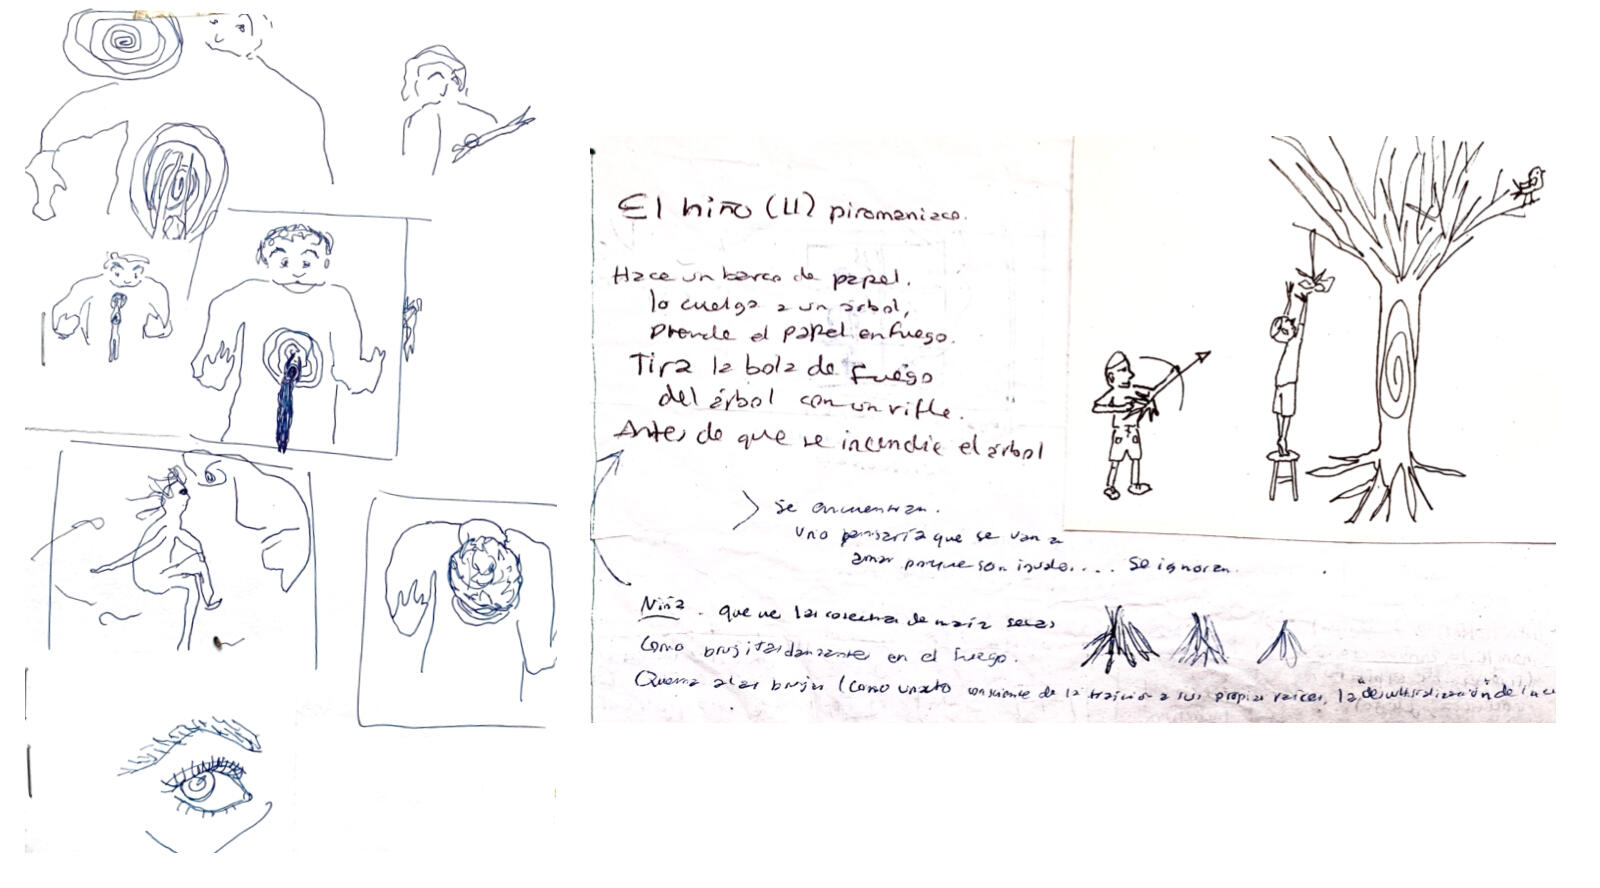 El niño (11) piromaniaco.
Hace un barco de papel.
lo cuelga a un árbol,
Prende el papel en fuego.
Tira la bola de fuego
del árbol con un rifle.
Antes de que se incendie el árbol
Se encuentran.
uno pensaría que se van a
amar porque son iguales.... Se ignoran.
Niña. que ve las cosechas de maíz secas
como brujitas danzantes en el fuego.
Quema a las brujas (como un acto consciente de la traición a sus propias raíces, la "desculturalización" de la